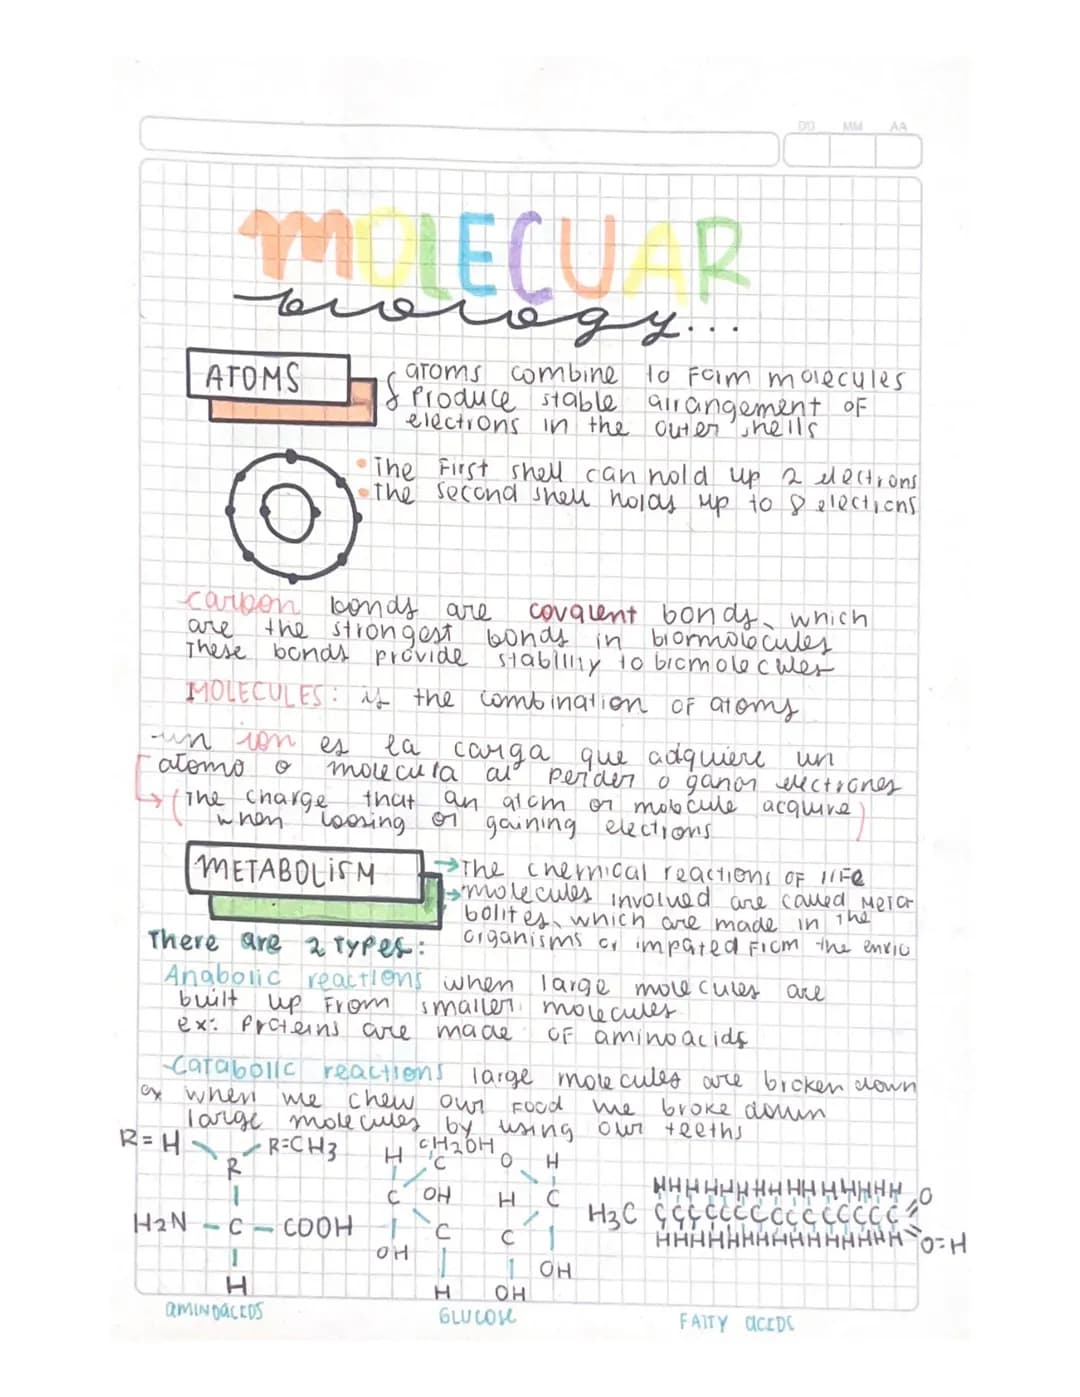 DD MM AA
MOLECUAR
biology...
ATOMS
atoms combine to form molecules
& Produce stable arrangement of
electrons in the outer shells
• The First shell can hold up 2 electrons
• The second shell holds up to 8 electrons
carbon bonds are covalent bonds, which
are the strongest bonds in biormolecules
These bonds provide stability to biomolecules
MOLECULES: is the combination of atoms
-un ion es la carga que adquiere un
atomo o molecula al perder o ganar electrones
(The charge that an atom or molecule acquire)
when loosing or gaining electrons
METABOLISM
→The chemical reactions of life
→molecules involved are called Meta
bolites, which are made in the
organisms or impated From the enviu
There are 2 Types:
Anabolic reactions when large molecules are
built up From smaller molecules
ex: Proteins are made of aminoacids
-Catabolic reactions large molecules are broken down
ex when we chew our food we broke down
large molecules by using our teeths
R=H R=CH3
R
H2N - C - COOH
H
aminoacids
H CH2OH
C O H
C OH H C
C C
OH OH
H OH
GLUCOSE
HHHHHHHHHHHHHHH O
H3C CCCCCCCCCCCCCCC
HHHHHHHHHHHHHHH O=H
FATTY ACIDS